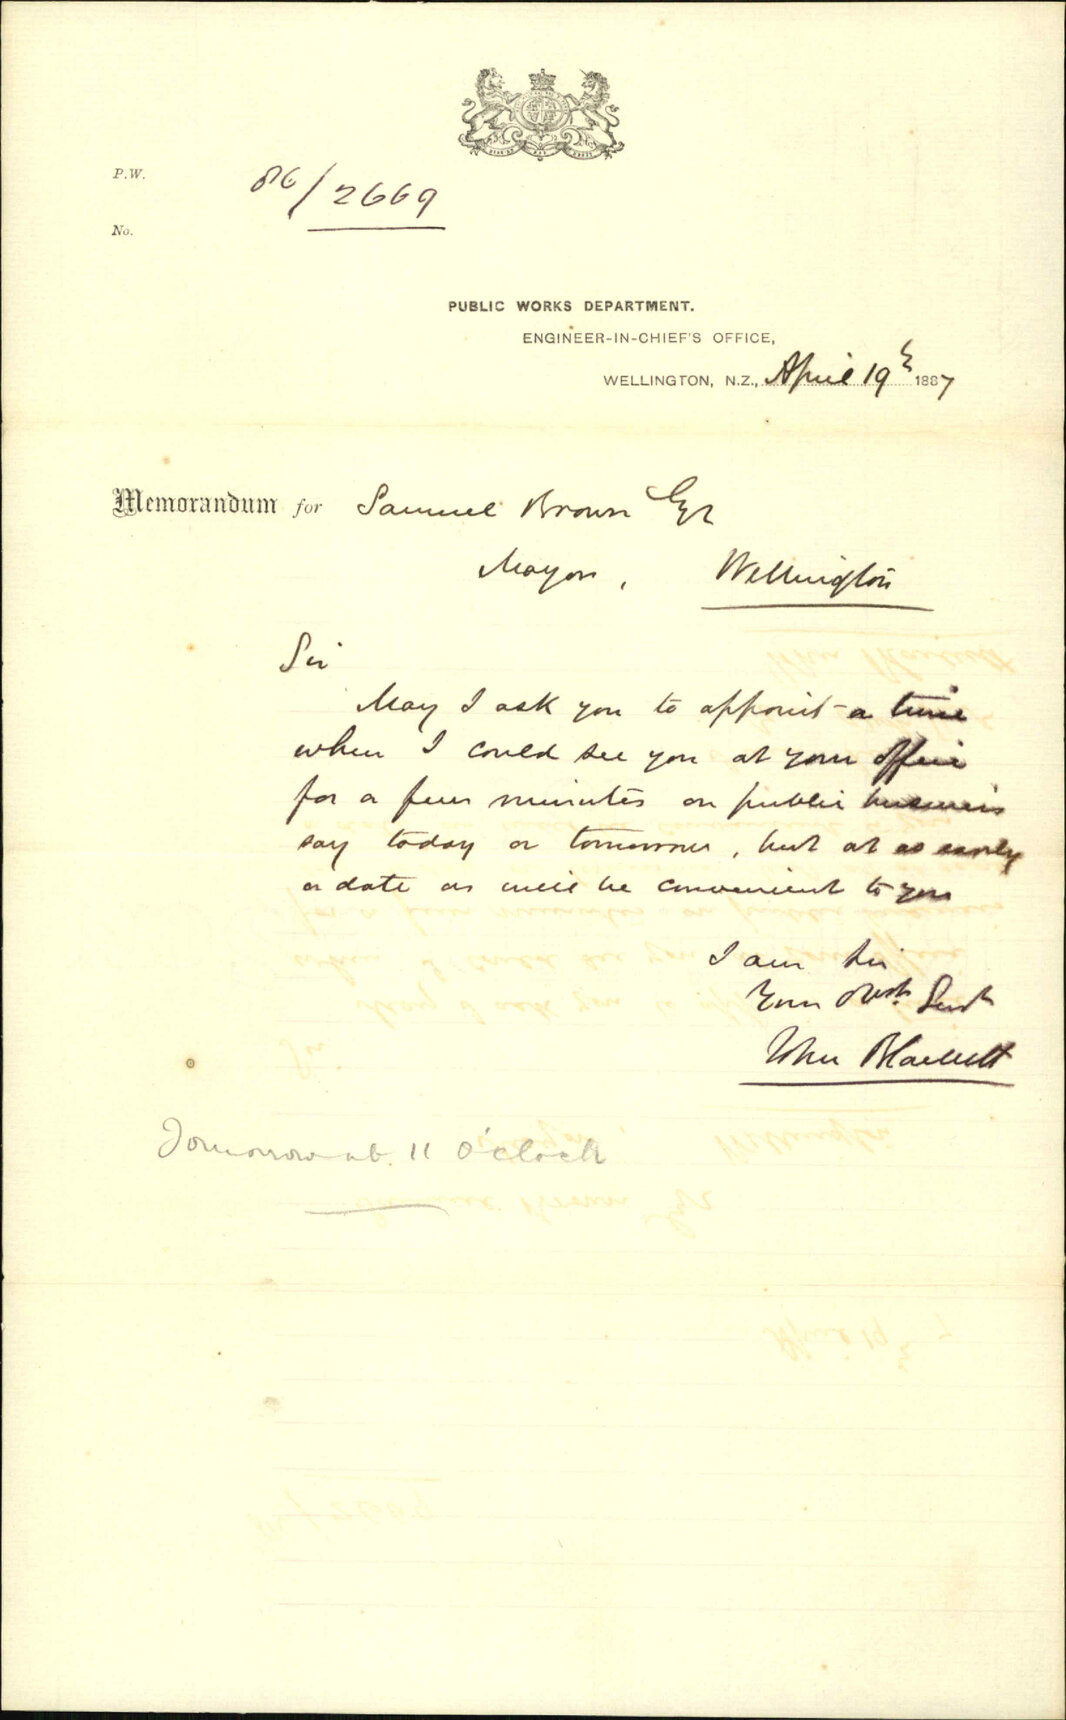 P.W.
86/2669
No.
PUBLIC WORKS DEPARTMENT.
ENGINEER-IN-CHIEF'S OFFICE,
WELLINGTON, N.Z., April 19th 1887
Memorandum for Samuel Brown Esq
Mayor, Wellington
Sir
May I ask you to appoint a time
when I could see you at your office
for a few minutes on public business
say today or tomorrow, but at as early
a date as will be convenient to you
I am Sir
Your Obdt. Servt
John Blackett
Tomorrow at 11 O'clock